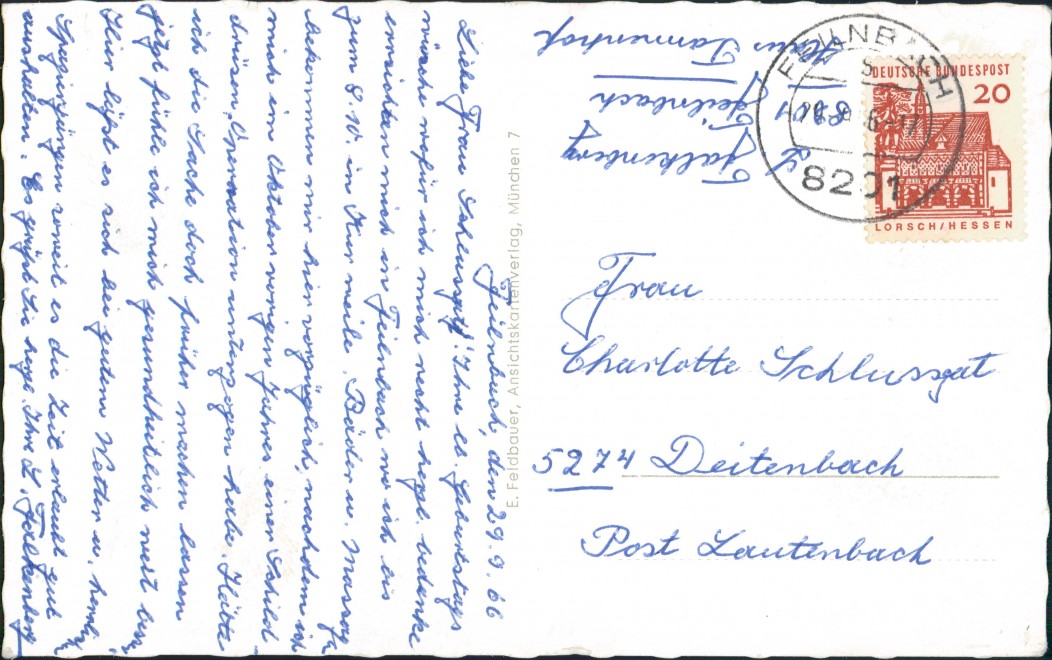 Feilnbach, den 29.9.66
Liebe Frau Schlussgat! Ihre lb. Geburtstags
wünsche wofür ich mich recht hrzl. bedanke
erreichten mich in Feilnbach wo ich bis
zum 8.10. in Kur weile. Bäder u. Massag
bekommen mir hier vorzüglich, nachdem ich
mich im Oktober vorigen Jahres einer Schild
drüsen Operation unterzogen habe. Hätte
ich die Sache doch früher machen lassen
jetzt fühle ich mich gesundheitlich viel besser
Hier läßt es sich bei gutem Wetter u. herrl.
Spaziergängen soweit es die Zeit erlaubt gut
aushalten. Es grüßt Sie hrzl. Ihre L. Falkenberg
E. Feldbauer, Ansichtskartenverlag, München 7
L. Falkenberg
8201 Feilnbach
Haus Tannenhof
FEILNBACH
8201
DEUTSCHE BUNDESPOST
20
LORSCH/HESSEN
Frau
Charlotte Schlussgat
5274 Deitenbach
Post Lautenbach